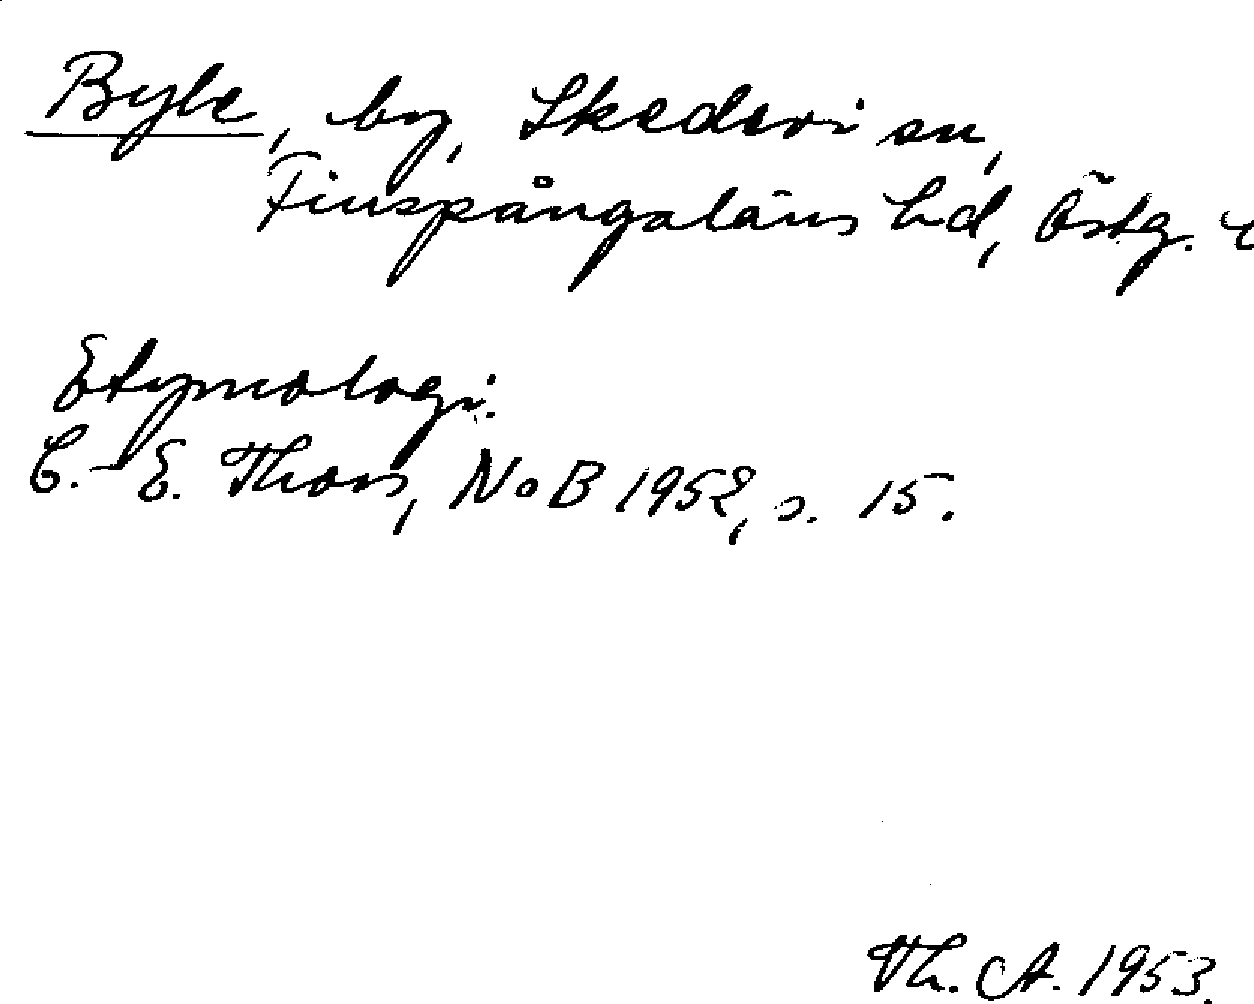 Byle, by, Skedevi sn,
Finspångaläns hd, Östg. l
Etymologi:
C.-E. Thors, NoB 1952, s. 15.
Th. A. 1953.